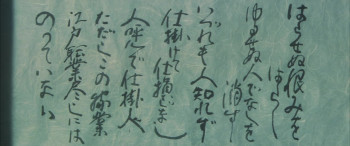 はらせぬ恨みを
はらし
ゆるせぬ人でなしを
消す
いづれも人知れず
仕掛けて仕損じなし
人呼んで仕掛人
ただしこの稼業
江戸職業尽しには
のっていない